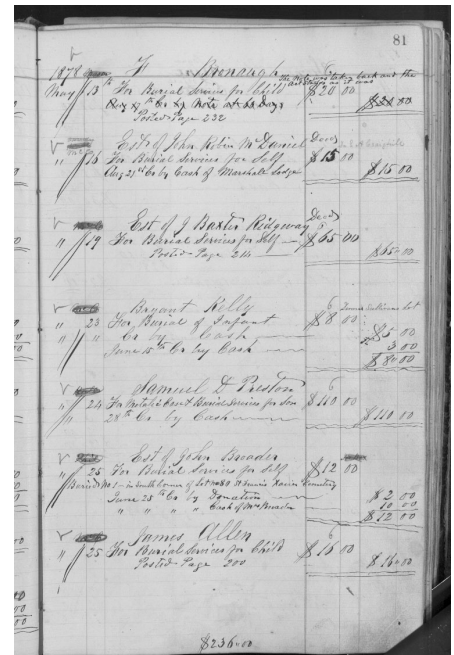 81
1878 F Bronaugh
The Note was taken back and the
act stands as it was
May 13th For Burial Service for Child $20 00 $20 00
Cr by Note at Days
Posted Page 232
Est of John Robin McDaniel Dead
" 16 For Burial Services for Self $15 00
Aug 21st Cr by Cash of Marshall Lodge $15 00
Est of J Baxter Ridgway Dead
" 19 For Burial Services for Self $65 00
Posted Page 214 $65 00
Bryant Kelly 6
" 23 For Burial of Infant $8 00
" Cr by Cash $5 00
June 15th Cr by Cash 3 00
$8 00
Samuel D Preston 6
" 24 For Metalic Case & Burial Services for Son $110 00
28th Cr by Cash $110 00
Est of John Broader
" 25 For Burial Services for Self $12 00
Buried No 1 in South corner of Lot No 80 St Francis Xavier Cemetery
June 25th Cr by Donation $2 00
" " " " Cash of Mrs Broader 10 00
$12 00
James Allen 6
" 25 For Burial Services for Child $16 00
Posted Page 200 $16 00
$236.00